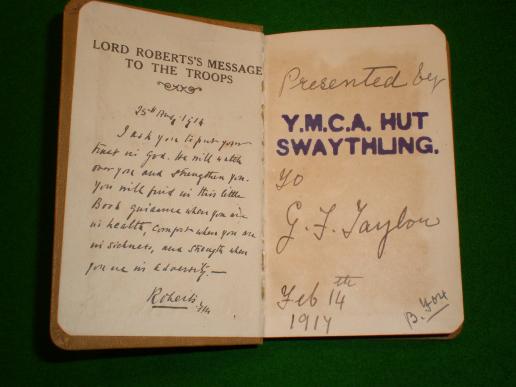 LORD ROBERTS'S MESSAGE
TO THE TROOPS
25th Aug. 1914
I ask you to put your
trust in God. He will watch
over you and strengthen you.
You will find in this little
Book guidance when you are
in health, comfort when you are
in sickness, and strength when
you are in adversity.—
Roberts
FM
Presented by
Y.M.C.A. HUT
SWAYTHLING.
To
G. F. Taylor
Feb 14th
1917